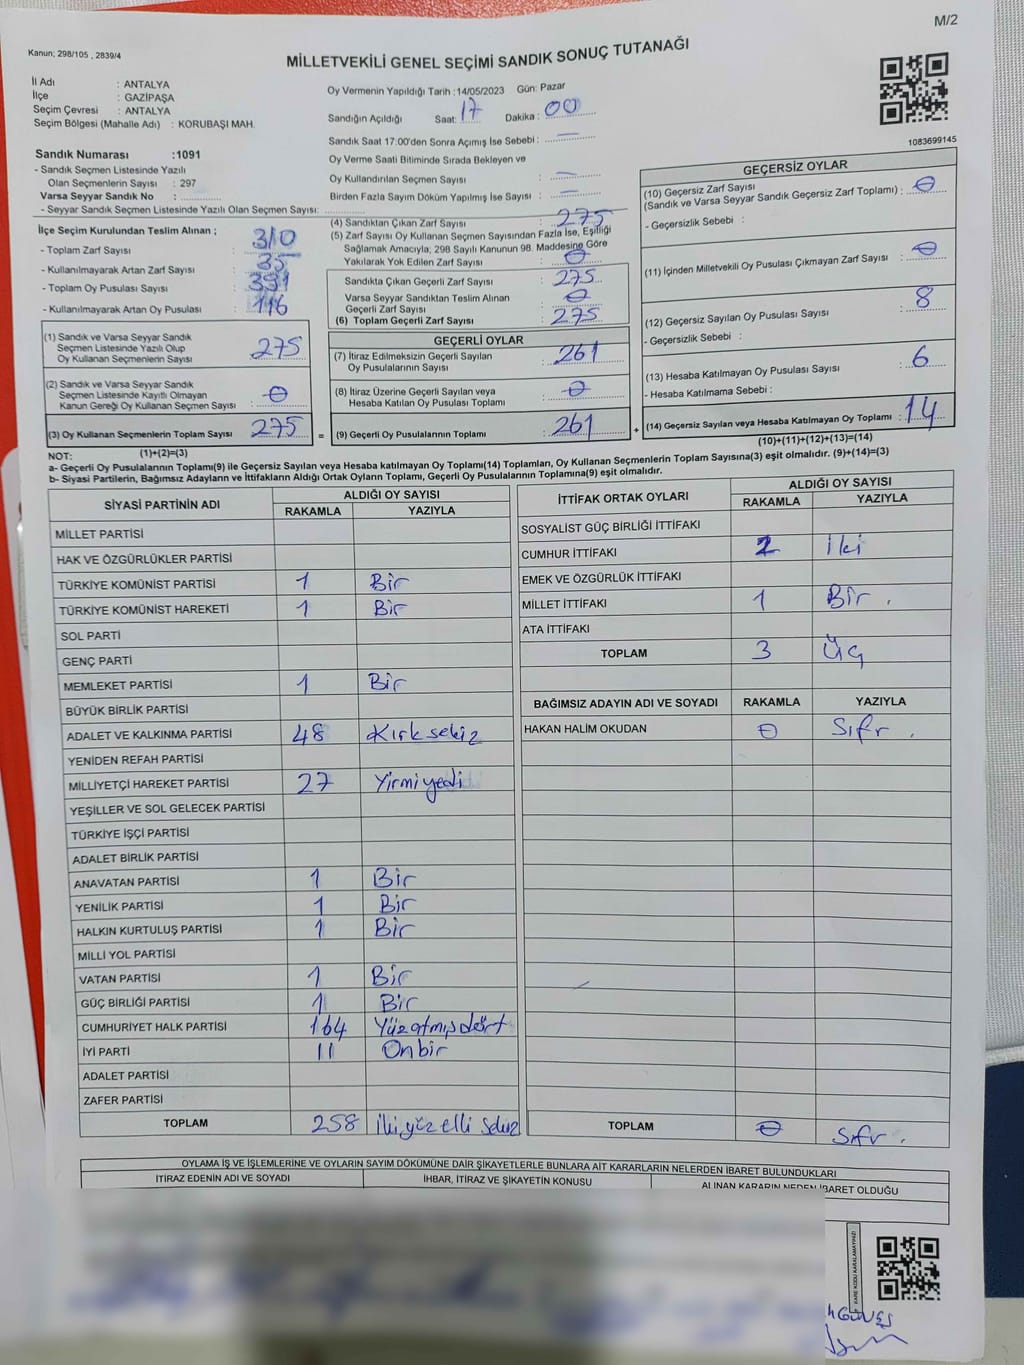 M/2
Kanun; 298/105 , 2839/4
MİLLETVEKİLİ GENEL SEÇİMİ SANDIK SONUÇ TUTANAĞI
İl Adı : ANTALYA
İlçe : GAZİPAŞA
Seçim Çevresi : ANTALYA
Seçim Bölgesi (Mahalle Adı) : KORUBAŞI MAH.
Sandık Numarası :1091
- Sandık Seçmen Listesinde Yazılı
Olan Seçmenlerin Sayısı : 297
Varsa Seyyar Sandık No :
- Seyyar Sandık Seçmen Listesinde Yazılı Olan Seçmen Sayısı:
Oy Vermenin Yapıldığı Tarih :14/05/2023 Gün: Pazar
Sandığın Açıldığı Saat: 17 Dakika : 00
Sandık Saat 17:00'den Sonra Açımış İse Sebebi : —
Oy Verme Saati Bitiminde Sırada Bekleyen ve
Oy Kullandırılan Seçmen Sayısı : —
Birden Fazla Sayım Döküm Yapılmış İse Sayısı : —
1083699145
İlçe Seçim Kurulundan Teslim Alınan ;
- Toplam Zarf Sayısı : 310
- Kullanılmayarak Artan Zarf Sayısı : 35
- Toplam Oy Pusulası Sayısı : 391
- Kullanılmayarak Artan Oy Pusulası : 116
(1) Sandık ve Varsa Seyyar Sandık
Seçmen Listesinde Yazılı Olup
Oy Kullanan Seçmenlerin Sayısı : 275
(2) Sandık ve Varsa Seyyar Sandık
Seçmen Listesinde Kayıtlı Olmayan
Kanun Gereği Oy Kullanan Seçmen Sayısı : 0
(3) Oy Kullanan Seçmenlerin Toplam Sayısı : 275
(1)+(2)=(3)
(4) Sandıktan Çıkan Zarf Sayısı : 275
(5) Zarf Sayısı Oy Kullanan Seçmen Sayısından Fazla İse, Eşitliği
Sağlamak Amacıyla; 298 Sayılı Kanunun 98. Maddesine Göre
Yakılarak Yok Edilen Zarf Sayısı : 0
Sandıkta Çıkan Geçerli Zarf Sayısı : 275
Varsa Seyyar Sandıktan Teslim Alınan
Geçerli Zarf Sayısı : 0
(6) Toplam Geçerli Zarf Sayısı : 275
GEÇERLİ OYLAR
(7) İtiraz Edilmeksizin Geçerli Sayılan
Oy Pusulalarının Sayısı : 261
(8) İtiraz Üzerine Geçerli Sayılan veya
Hesaba Katılan Oy Pusulası Toplamı : 0
= (9) Geçerli Oy Pusulalarının Toplamı : 261 +
GEÇERSİZ OYLAR
(10) Geçersiz Zarf Sayısı
(Sandık ve Varsa Seyyar Sandık Geçersiz Zarf Toplamı) : 0
- Geçersizlik Sebebi :
(11) İçinden Milletvekili Oy Pusulası Çıkmayan Zarf Sayısı : 0
(12) Geçersiz Sayılan Oy Pusulası Sayısı : 8
- Geçersizlik Sebebi :
(13) Hesaba Katılmayan Oy Pusulası Sayısı : 6
- Hesaba Katılmama Sebebi :
(14) Geçersiz Sayılan veya Hesaba Katılmayan Oy Toplamı : 14
(10)+(11)+(12)+(13)=(14)
NOT:
a- Geçerli Oy Pusulalarının Toplamı(9) ile Geçersiz Sayılan veya Hesaba katılmayan Oy Toplamı(14) Toplamları, Oy Kullanan Seçmenlerin Toplam Sayısına(3) eşit olmalıdır. (9)+(14)=(3)
b- Siyasi Partilerin, Bağımsız Adayların ve İttifakların Aldığı Ortak Oyların Toplamı, Geçerli Oy Pusulalarının Toplamına(9) eşit olmalıdır.
SİYASİ PARTİNİN ADI ALDIĞI OY SAYISI
RAKAMLA YAZIYLA
MİLLET PARTİSİ
HAK VE ÖZGÜRLÜKLER PARTİSİ
TÜRKİYE KOMÜNİST PARTİSİ 1 Bir
TÜRKİYE KOMÜNİST HAREKETİ 1 Bir
SOL PARTİ
GENÇ PARTİ
MEMLEKET PARTİSİ 1 Bir
BÜYÜK BİRLİK PARTİSİ
ADALET VE KALKINMA PARTİSİ 48 Kırksekiz
YENİDEN REFAH PARTİSİ
MİLLİYETÇİ HAREKET PARTİSİ 27 Yirmiyedi
YEŞİLLER VE SOL GELECEK PARTİSİ
TÜRKİYE İŞÇİ PARTİSİ
ADALET BİRLİK PARTİSİ
ANAVATAN PARTİSİ 1 Bir
YENİLİK PARTİSİ 1 Bir
HALKIN KURTULUŞ PARTİSİ 1 Bir
MİLLİ YOL PARTİSİ
VATAN PARTİSİ 1 Bir
GÜÇ BİRLİĞİ PARTİSİ 1 Bir
CUMHURİYET HALK PARTİSİ 164 Yüzatmışdört
İYİ PARTİ 11 Onbir
ADALET PARTİSİ
ZAFER PARTİSİ
TOPLAM 258 İkiyüz elli sekiz
İTTİFAK ORTAK OYLARI ALDIĞI OY SAYISI
RAKAMLA YAZIYLA
SOSYALİST GÜÇ BİRLİĞİ İTTİFAKI
CUMHUR İTTİFAKI 2 İki
EMEK VE ÖZGÜRLÜK İTTİFAKI
MİLLET İTTİFAKI 1 Bir .
ATA İTTİFAKI
TOPLAM 3 Üç
BAĞIMSIZ ADAYIN ADI VE SOYADI RAKAMLA YAZIYLA
HAKAN HALİM OKUDAN 0 Sıfr .
TOPLAM 0 Sıfr .
OYLAMA İŞ VE İŞLEMLERİNE VE OYLARIN SAYIM DÖKÜMÜNE DAİR ŞİKAYETLERLE BUNLARA AİT KARARLARIN NELERDEN İBARET BULUNDUKLARI
İTİRAZ EDENİN ADI VE SOYADI İHBAR, İTİRAZ VE ŞİKAYETİN KONUSU ALINAN KARARIN NEDEN İBARET OLDUĞU
KARE KODU KARALAMAYINIZ!
GÜNEŞ